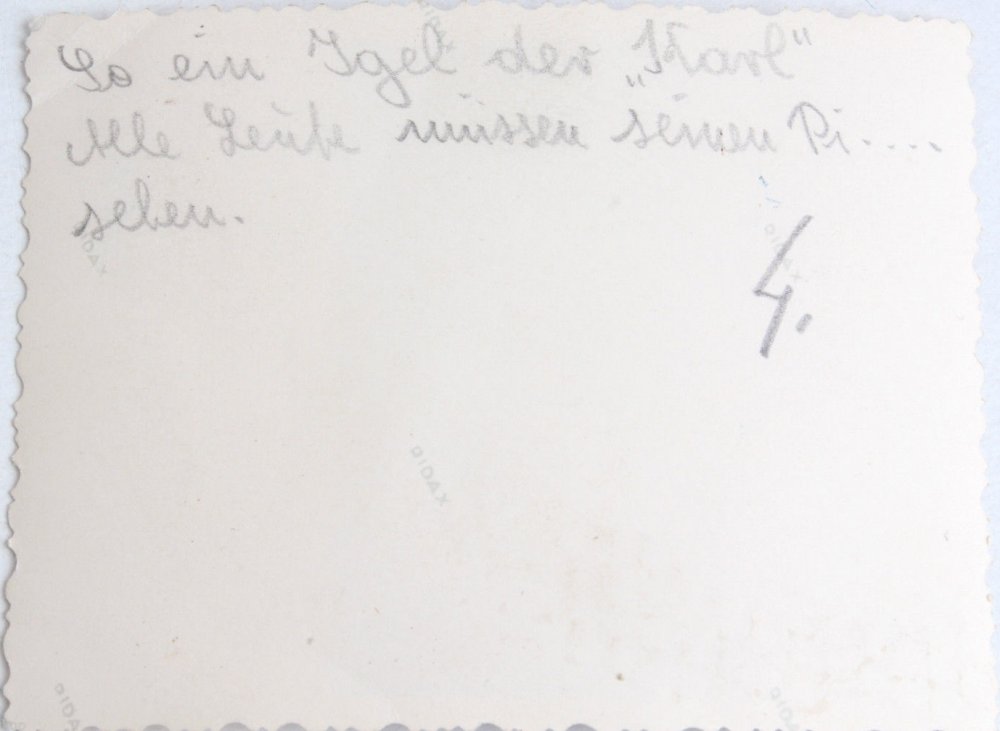 So ein Igel der „Karl"
Alle Leute müssen seinen Pi....
sehen.
4.
DIDAX
DIDAX
DIDAX
DIDAX
DIDAX